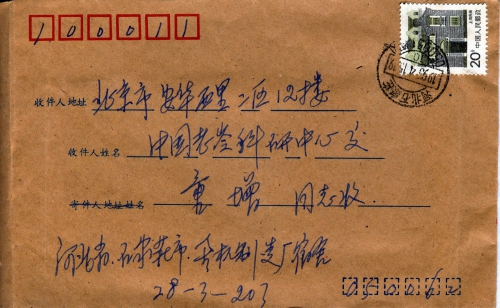 100011
20分 中国人民邮政
收件人地址 北京市安华西里二区12楼
收件人姓名 中国老龄科研中心交
寄件人地址姓名 董增 同志收
河北省石家庄市手机制造厂宿舍
28-3-203